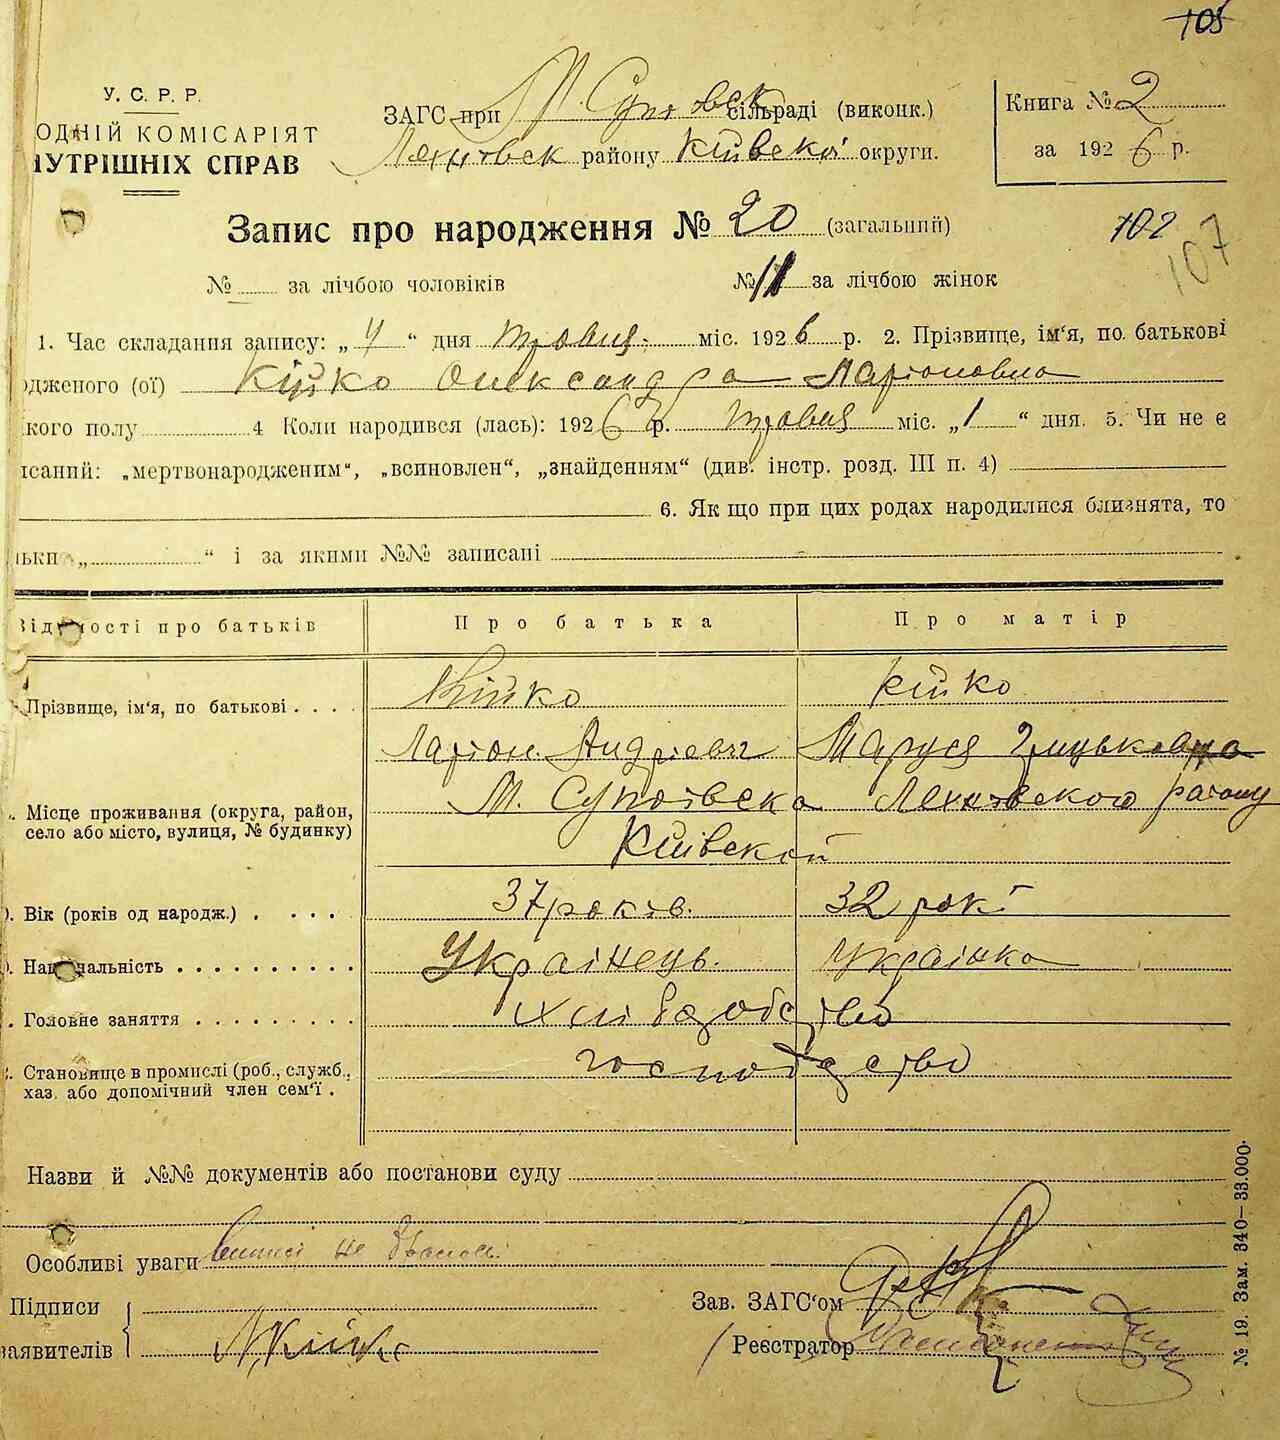 105
У. С. Р. Р.
ОДНІЙ КОМІСАРІЯТ
НУТРІШНІХ СПРАВ
ЗАГС при М. Супоєвск сільраді (виконк.)
району Київскоі округи.
Книга № 2
за 1926 р.
Запис про народження № 20 (загальний)
102
107
№ за лічбою чоловіків № 11 за лічбою жінок
1. Час складання запису: „ 4 “ дня травня міс. 1926 р. 2. Прізвище, ім‘я, по батькові
одженого (ої) Кійко Олександра Ларіоновна
кого полу 4 Коли народився (лась): 1926 р. травня міс. „ 1 “ дня. 5. Чи не є
исаний: „мертвонародженим“, „всиновлен“, „знайденням“ (див. інстр. розд. III п. 4)
6. Як що при цих родах народилися близнята, то
ьки „ “ і за якими №№ записані
Відомості про батьків Про батька Про матір
Прізвище, ім‘я, по батькові Кійко Кійко
Ларіон Андрієвич Маруся Грицьковна
Місце проживання (округа, район, село або місто, вулиця, № будинку) М. Супоєвска району
Київскоі
Вік (років од народж.) 37 років. 32 рокі
Національність Украінець. Украінка
Головне заняття хліборобство
Становище в промислі (роб., служб., хаз. або допомічний член сем‘ї господарство
Назви й №№ документів або постанови суду
Особліві уваги не
Підписи
заявителів Л Кійко
Зав. ЗАГС‘ом
Реєстратор
№ 19. Зам. 340—33.000.